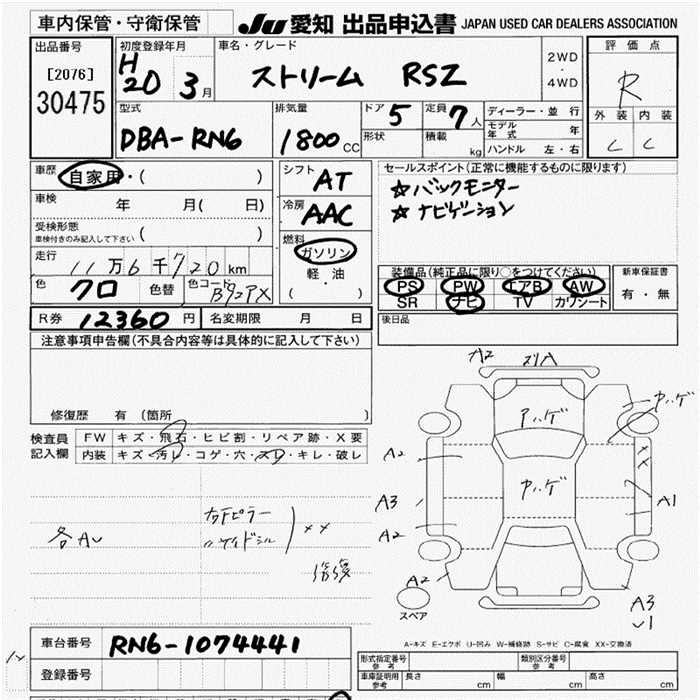 車内保管・守衛保管
JU 愛知 出品申込書 JAPAN USED CAR DEALERS ASSOCIATION
出品番号
[2076]
30475
初度登録年月
H20 3月
車名・グレード
ストリーム RSZ
2WD
・
4WD
評価点
R
外装 内装
C C
型式
DBA-RN6
排気量
1800 CC
ドア 5
形状
定員 7人
積載 kg
ディーラー・並行
モデル年式 年
ハンドル 左・右
車歴
自家用・( )
車検 年 月( 日)
受検形態
車検付きのみ記入して下さい ( )
走行
11万6千720km
色 クロ 色替 色コード
シフト AT
冷房 AAC
燃料
ガソリン
軽・油
( ・ )
セールスポイント(正常に機能するものに限ります)
☆バックモニター
☆ナビゲーション
装備品(純正品に限り○をつけてください)
PS PW エアB AW
SR ナビ TV カワシート
新車保証書
有・無
後日品
R券 12360円 名変期限 月 日
注意事項申告欄(不具合内容等は具体的に記入して下さい)
修復歴 有(箇所 )
検査員記入欄
FW キズ・飛石・ヒビ割・リペア跡・X要
内装 キズ・汚レ・コゲ・穴・スレ・キレ・破レ
各AU
右Fピラー
〃サイドシル
××
修復
A2
ヤハゲ
ヤハゲ
ヤハゲ
A2
A3
A2
A2
××
A1
A3
スペア
A-キズ E-エクボ U-凹み W-補修跡 S-サビ C-腐食 XX-交換済
車台番号 RN6-1074441
登録番号
形式指定番号 参考
類別区分番号 参考
車庫証明用 参考 長さ cm 幅 cm 高さ cm